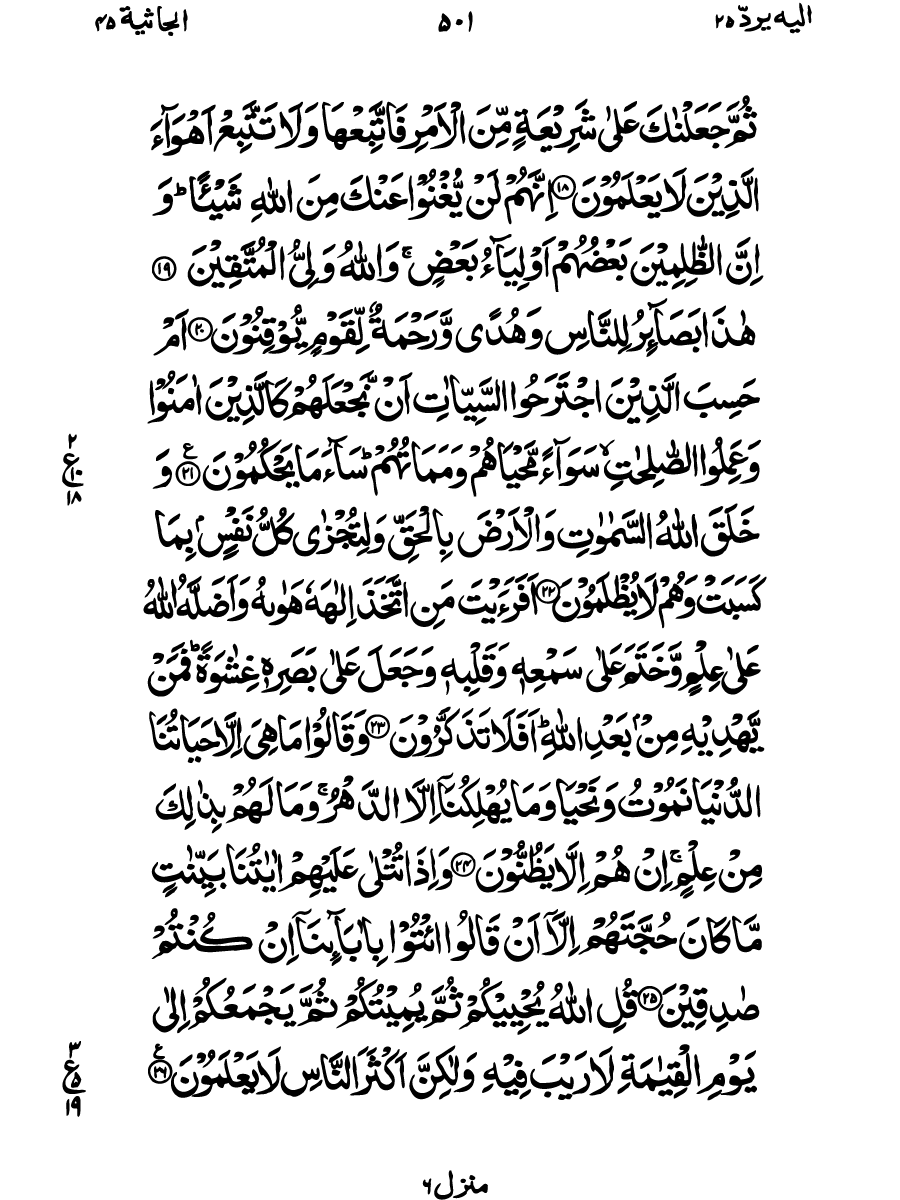 الیه یردّ ۲۵
۵۰۱
الجاثیة ۴۵
ثُمَّ جَعَلْنٰكَ عَلٰی شَرِیْعَةٍ مِّنَ الْاَمْرِ فَاتَّبِعْهَا وَلَا تَتَّبِعْ اَهْوَآءَ
الَّذِیْنَ لَا یَعْلَمُوْنَ ۝۱۸ اِنَّهُمْ لَنْ یُّغْنُوْا عَنْكَ مِنَ اللّٰهِ شَیْـًٔا ؕ وَ
اِنَّ الظّٰلِمِیْنَ بَعْضُهُمْ اَوْلِیَآءُ بَعْضٍ ۚ وَاللّٰهُ وَلِیُّ الْمُتَّقِیْنَ ۝۱۹
هٰذَا بَصَآىِٕرُ لِلنَّاسِ وَهُدًی وَّرَحْمَةٌ لِّقَوْمٍ یُّوْقِنُوْنَ ۝۲۰ اَمْ
حَسِبَ الَّذِیْنَ اجْتَرَحُوا السَّیِّاٰتِ اَنْ نَّجْعَلَهُمْ كَالَّذِیْنَ اٰمَنُوْا
وَعَمِلُوا الصّٰلِحٰتِ ۙ سَوَآءً مَّحْیَاهُمْ وَمَمَاتُهُمْ ؕ سَآءَ مَا یَحْكُمُوْنَ ۝۲۱ ع وَ
۲
ع
۱۰
۱۸
خَلَقَ اللّٰهُ السَّمٰوٰتِ وَالْاَرْضَ بِالْحَقِّ وَلِتُجْزٰی كُلُّ نَفْسٍۭ بِمَا
كَسَبَتْ وَهُمْ لَا یُظْلَمُوْنَ ۝۲۲ اَفَرَءَیْتَ مَنِ اتَّخَذَ اِلٰهَهٗ هَوٰىهُ وَاَضَلَّهُ اللّٰهُ
عَلٰی عِلْمٍ وَّخَتَمَ عَلٰی سَمْعِهٖ وَقَلْبِهٖ وَجَعَلَ عَلٰی بَصَرِهٖ غِشٰوَةً ؕ فَمَنْ
یَّهْدِیْهِ مِنْۢ بَعْدِ اللّٰهِ ؕ اَفَلَا تَذَكَّرُوْنَ ۝۲۳ وَقَالُوْا مَا هِیَ اِلَّا حَیَاتُنَا
الدُّنْیَا نَمُوْتُ وَنَحْیَا وَمَا یُهْلِكُنَاۤ اِلَّا الدَّهْرُ ۚ وَمَا لَهُمْ بِذٰلِكَ
مِنْ عِلْمٍ ۚ اِنْ هُمْ اِلَّا یَظُنُّوْنَ ۝۲۴ وَاِذَا تُتْلٰی عَلَیْهِمْ اٰیٰتُنَا بَیِّنٰتٍ
مَّا كَانَ حُجَّتَهُمْ اِلَّاۤ اَنْ قَالُوا ائْتُوْا بِاٰبَآىِٕنَاۤ اِنْ كُنْتُمْ
صٰدِقِیْنَ ۝۲۵ قُلِ اللّٰهُ یُحْیِیْكُمْ ثُمَّ یُمِیْتُكُمْ ثُمَّ یَجْمَعُكُمْ اِلٰی
یَوْمِ الْقِیٰمَةِ لَا رَیْبَ فِیْهِ وَلٰكِنَّ اَكْثَرَ النَّاسِ لَا یَعْلَمُوْنَ ۝۲۶ ع
۳
ع
۵
۱۹
منزل ۶